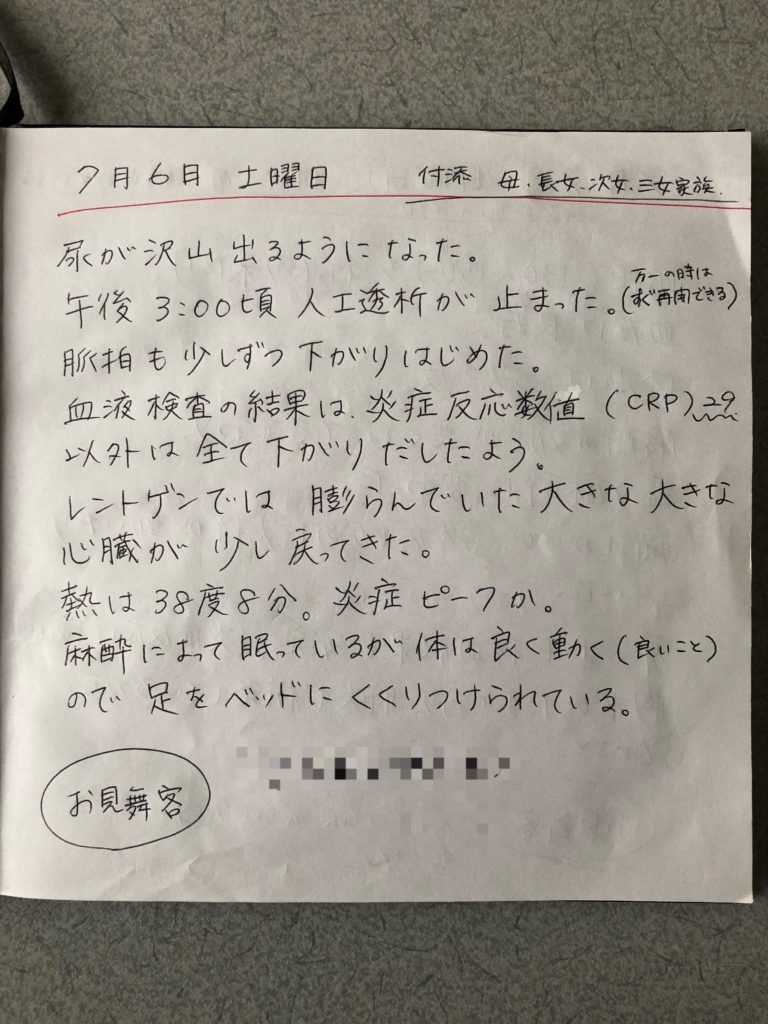 7月6日 土曜日 付添 母、長女、次女、三女家族.
尿が沢山出るようになった。
午後3:00頃人工透析が止まった。(万一の時はすぐ再開できる)
脈拍も少しずつ下がりはじめた。
血液検査の結果は、炎症反応数値(CRP)29
以外は全て下がりだしたよう。
レントゲンでは膨らんでいた大きな大きな
心臓が少し戻ってきた。
熱は38度8分。炎症ピークか。
麻酔によって眠っているが体は良く動く(良いこと)
ので足をベッドにくくりつけられている。
お見舞客